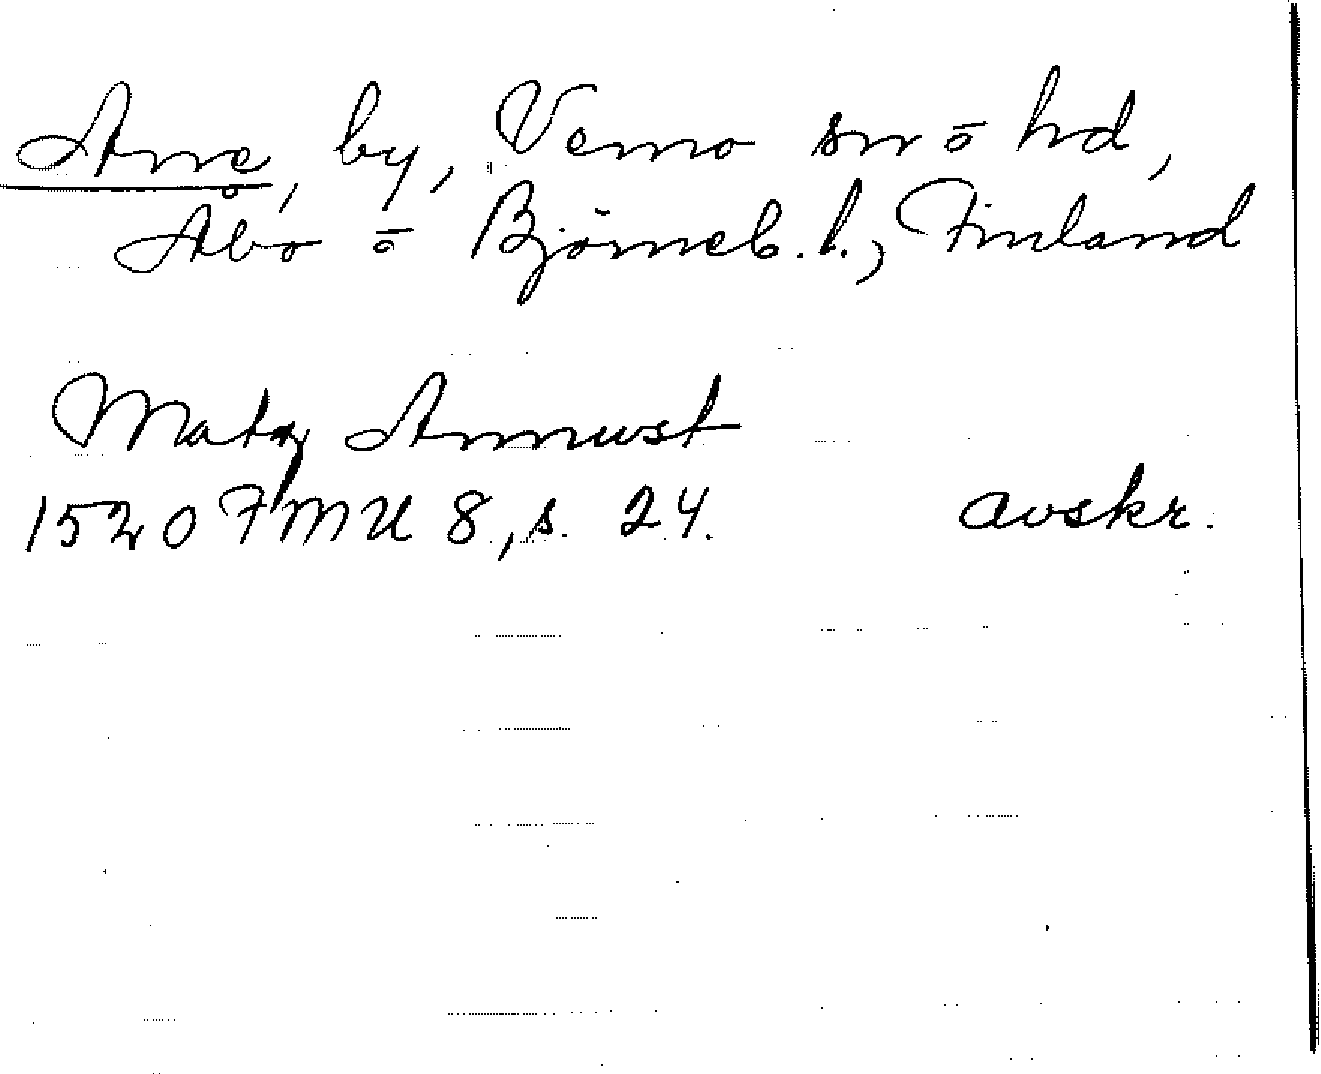 Arve, by, Vemo sn ō hd,
Åbo ō Björneb. l., Finland
Matz Annust
1520 FMU 8, s. 24. avskr.